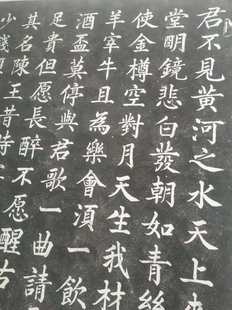 君不見黃河之水天上來
堂明鏡悲白發朝如青絲
使金樽空對月天生我材
羊宰牛且為樂會湏一飲
酒盃莫停與君歌一曲請
足貴但愿長醉不愿醒古
其名陳王昔時
少錢